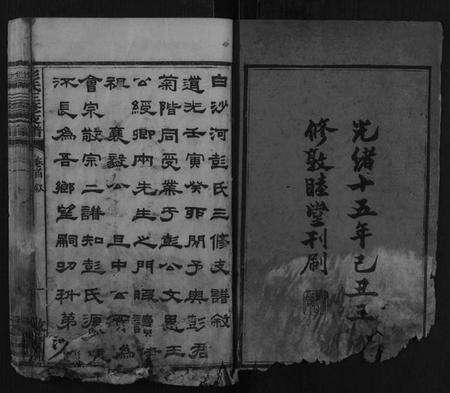 光緒十五年己丑三
修敦睦堂刊刷
白沙河彭氏三修支譜敘
道光壬寅癸卯閒予與彭君
菊階同受業于彭公文思王
公經卿兩先生之門暇讀
祖襄毅公且中公
會宗敬宗二譜知彭氏源
流長為吾鄉望嗣切科第